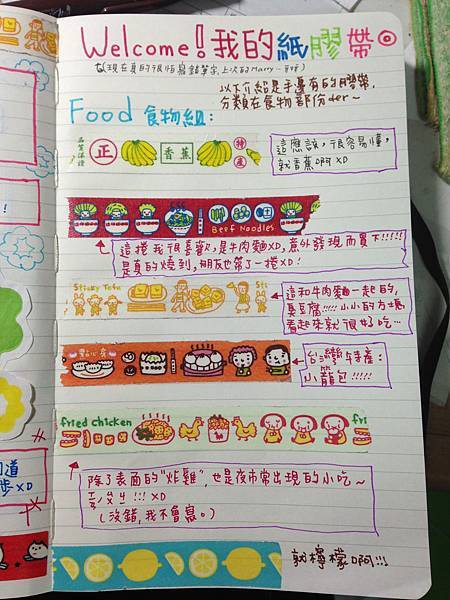 Welcome! 我的紙膠帶
以下介紹是手邊有的膠帶,
分類在食物部份der~
Food 食物組:
品質保證 正 香蕉 特產
這應該,很容易懂,
就香蕉啊XD
Beef Noodles
這捲我很喜歡,是牛肉麵XD,意外發現而買下!!!!!
是真的燒到,朋友也帶了一捲XD!
Stinky Tofu Sti
這和牛肉麵一起的,
臭豆腐!!!!! 小小的方塊,
看起來就很好吃…
點心房
台灣特產:
小籠包!!!!!
fried chicken fri
除了表面的"炸雞",也是夜市常出現的小吃~
ㄢˊㄆㄐ!!! XD
(沒錯,我不會寫。)
就檸檬啊!!!
道
步XD